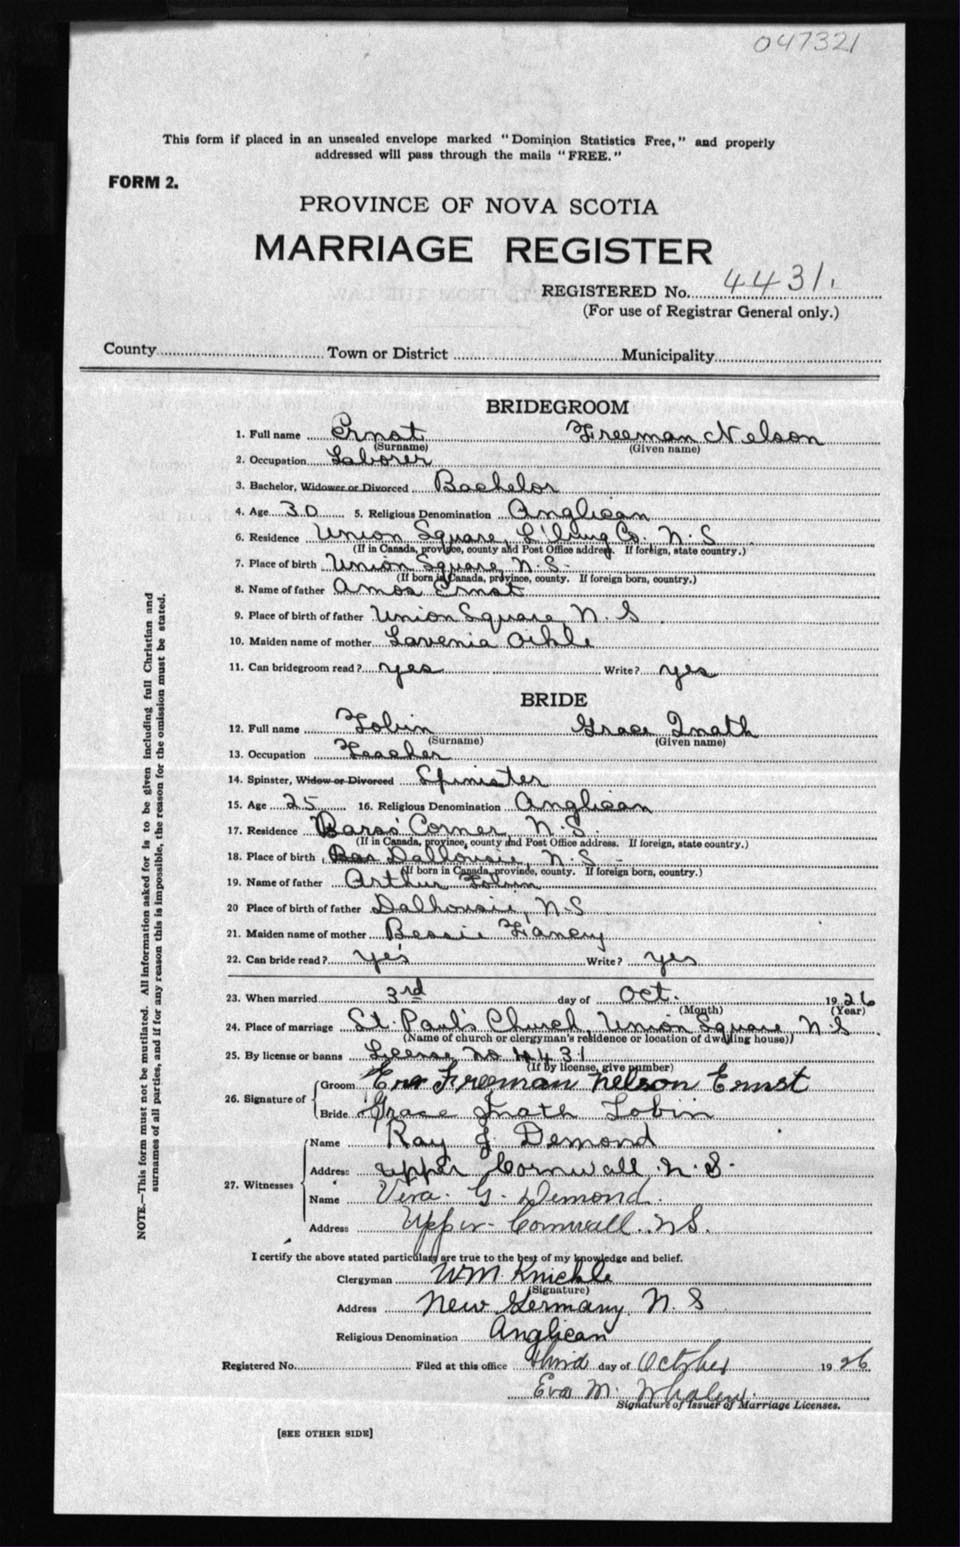 047321
This form if placed in an unsealed envelope marked "Dominion Statistics Free," and properly
addressed will pass through the mails "FREE."
FORM 2.
PROVINCE OF NOVA SCOTIA
MARRIAGE REGISTER
REGISTERED No. 4431.
(For use of Registrar General only.)
County Town or District Municipality
BRIDEGROOM
1. Full name Ernst Freeman Nelson
(Surname) (Given name)
2. Occupation Laborer
3. Bachelor, Widower or Divorced Bachelor
4. Age 30 5. Religious Denomination Anglican
6. Residence Union Square, L'burg Co. N.S
(If in Canada, province, county and Post Office address. If foreign, state country.)
7. Place of birth Union Square, N.S.
(If born in Canada, province, county. If foreign born, country.)
8. Name of father Amos Ernst
9. Place of birth of father Union Square, N.S
10. Maiden name of mother Lavenia Oikle
11. Can bridegroom read? yes Write? yes
BRIDE
12. Full name Tobin Grace Inath
(Surname) (Given name)
13. Occupation Teacher
14. Spinster, Widow or Divorced Spinister
15. Age 25 16. Religious Denomination Anglican
17. Residence Barss' Corner, N.S.
(If in Canada, province, county and Post Office address. If foreign, state country.)
18. Place of birth Dalhousie, N.S
(If born in Canada, province, county. If foreign born, country.)
19. Name of father Arthur Tobin
20 Place of birth of father Dalhousie, N.S
21. Maiden name of mother Bessie
22. Can bride read? yes Write? yes
23. When married 3rd day of Oct. 1926
(Month) (Year)
24. Place of marriage St. Paul's Church, Union Square, N.S
(Name of church or clergyman's residence or location of dwelling house)
25. By license or banns License no 4431
(If by license, give number)
26. Signature of
Groom Freeman Nelson Ernst
Bride Grace Inath Tobin
27. Witnesses
Name Ray J. Demond
Address Upper Cornwall N.S.
Name Vera G. Demond.
Address Upper Cornwall. N.S.
I certify the above stated particulars are true to the best of my knowledge and belief.
Clergyman WM. Knickle
(Signature)
Address New Germany, N.S
Religious Denomination Anglican
Registered No. Filed at this office third day of October 1926
Eva M. Whalen.
Signature of Issuer of Marriage Licenses.
[SEE OTHER SIDE]
NOTE.—This form must not be mutilated. All information asked for is to be given including full Christian and
surnames of all parties, and if for any reason this is impossible, the reason for the omission must be stated.